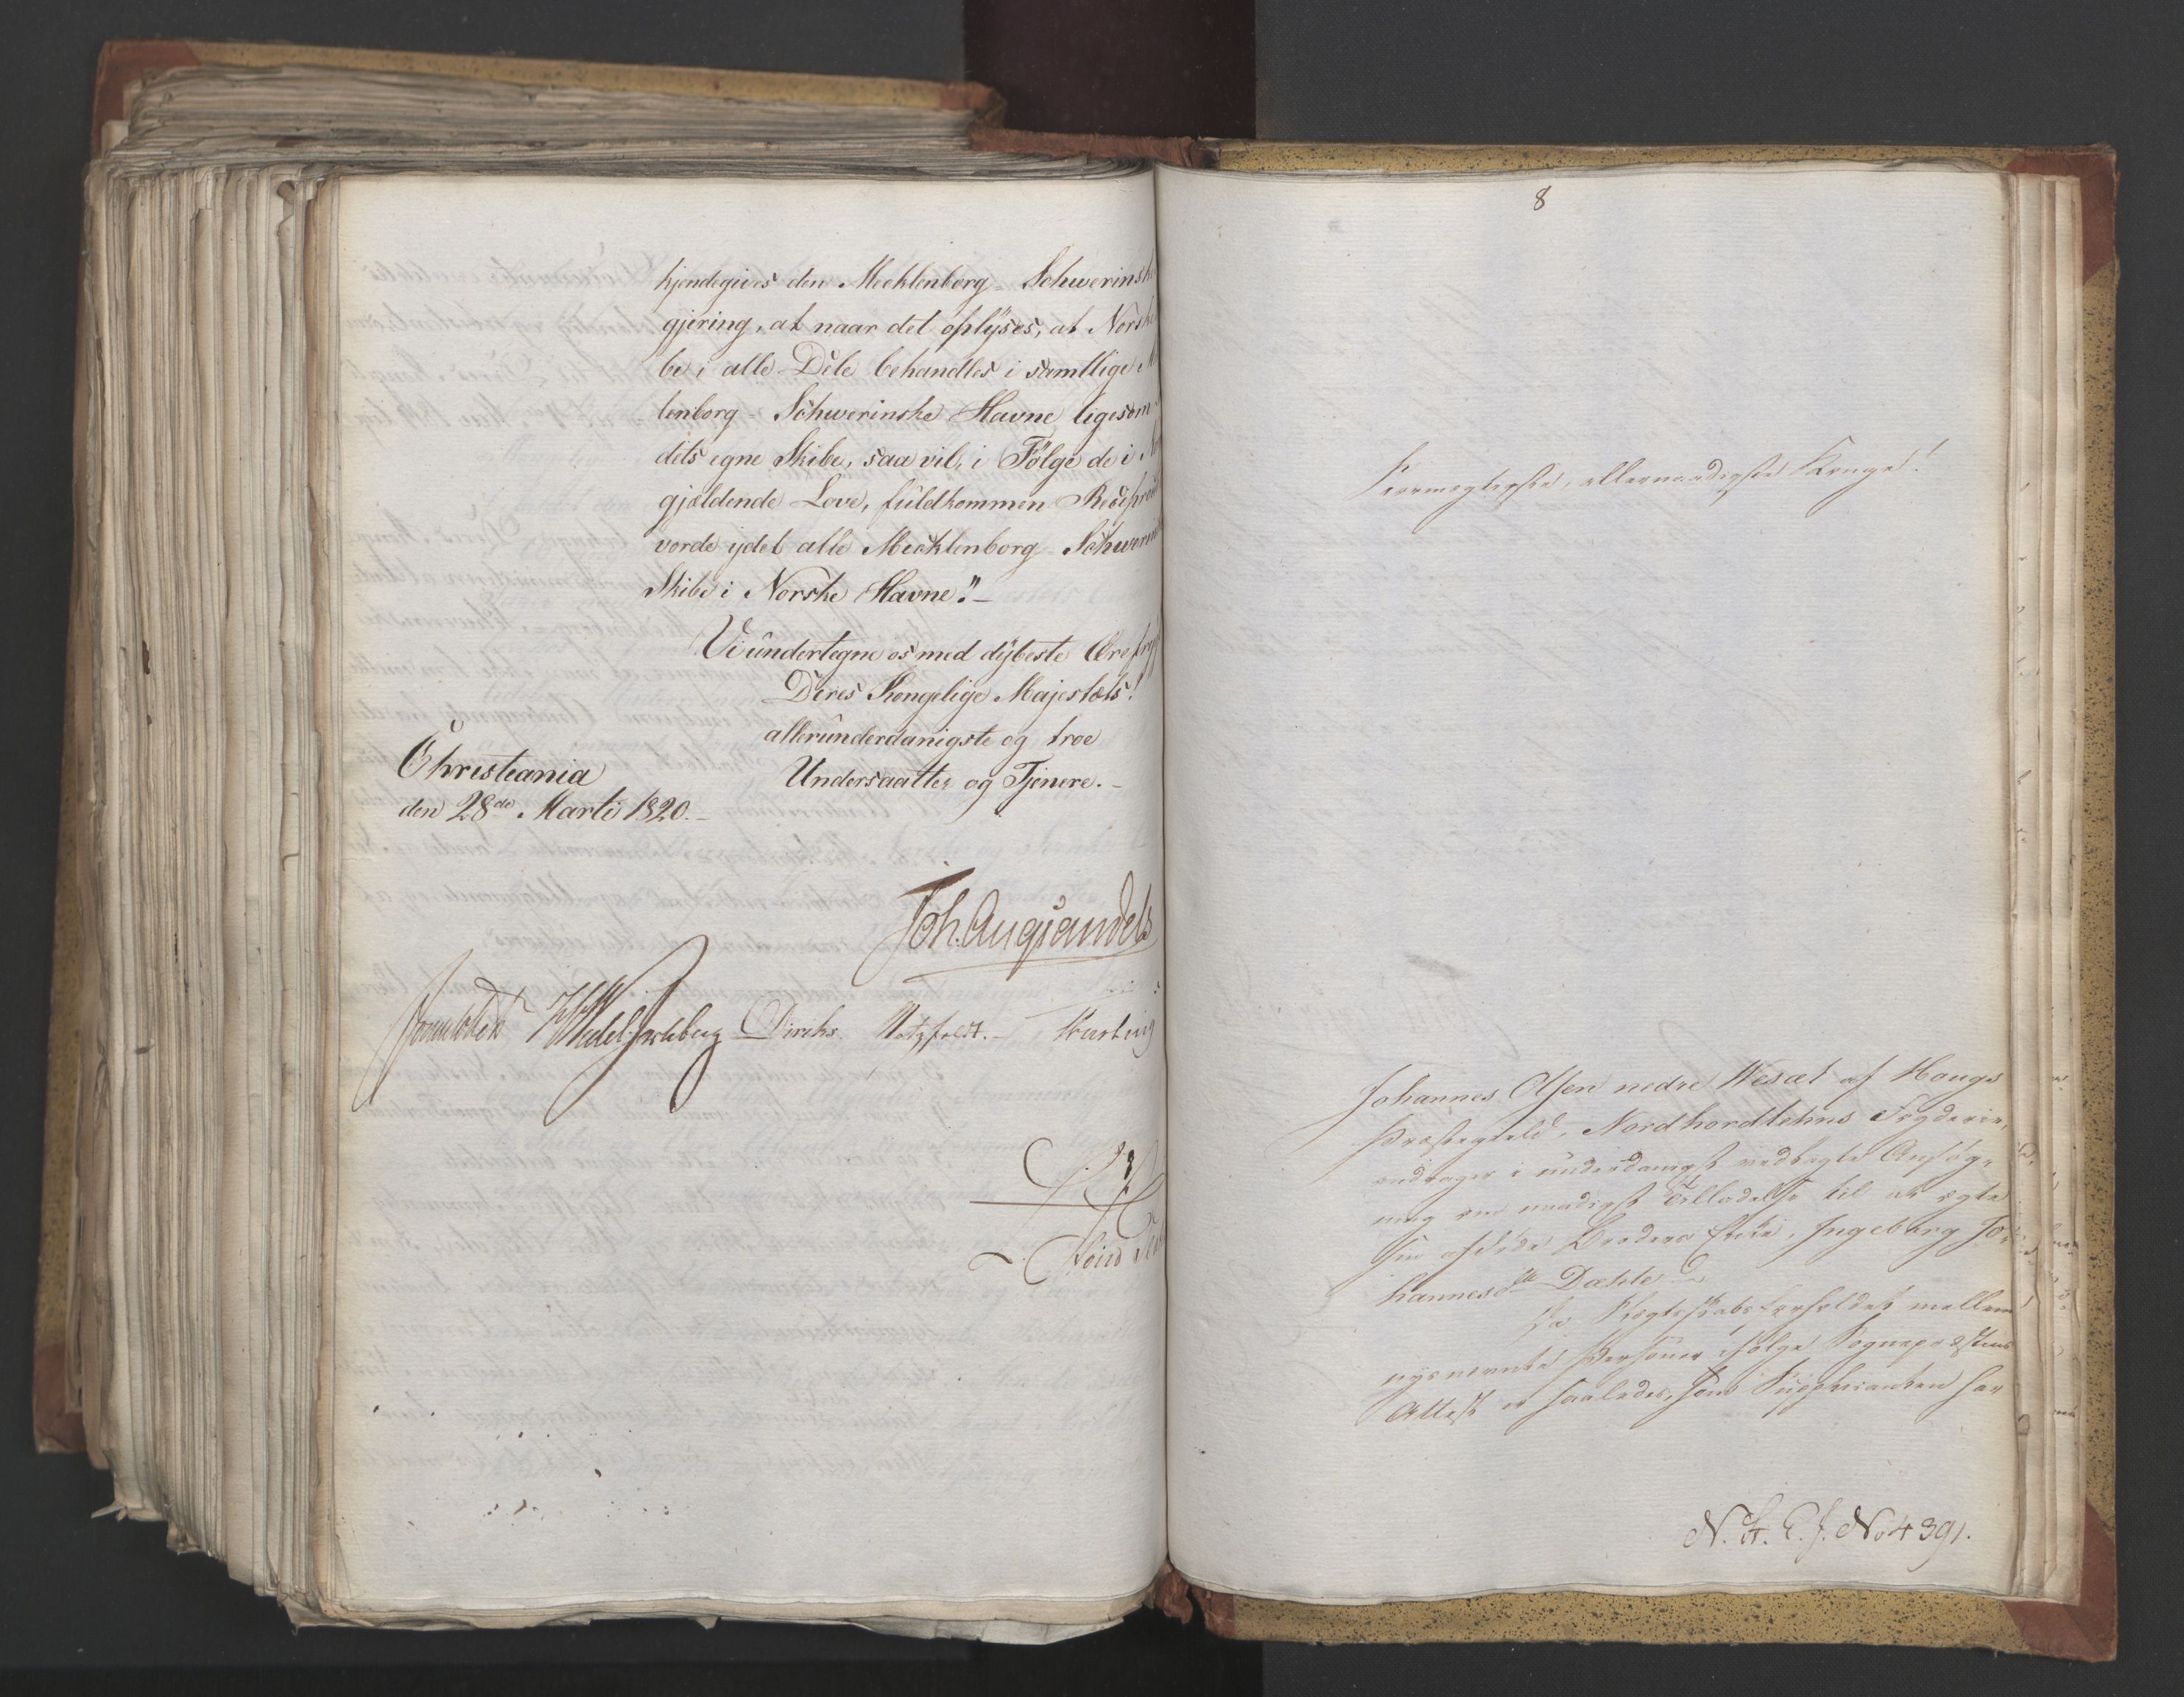 kjendegives den Mecklenborg-Schwerinske
gjering, at naar det oplÿses, at Norske
be i alle Dele behandles i samtlige M
lenborg-Schwerinske Havne ligesom
dets egne Skibe, saa vil, i Følge de i No
gjældende Love, fuldkommen Reciproci
vorde ydet alle Mecklenborg-Schwerin
Skibe i Norske Havne."-
Vi undertegne os med dÿbeste Ærefrygt
Deres Kongelige Majestæts!
allerunderdanigste og troe
Undersaatter og Tjenere.-
Christiania
den 28de Marti 1820.-
Joh. Aug Sandels
Sommerfeldt HWedel Jarlsberg Diriks. Motzfeldt.- Hartvig
8
Stormægtigste, allernaadigste Konge!
Johannes Olsen nedre Wesæt af Houge
Præstegjeld, Nordhordlehns Fogderie,
andrager i underdanigst vedlagte Ansøg-
ning om naadigst Tilladelse til at ægte
sin afdøde Broders Enke, Ingeborg Jo-
hannesdtr Dæhle
Da Slægtskabsforholdet mellem
nysnevnte Personer ifølge Sognepræstens
Attest er saaledes, som Supplicanten har
N. K. E. J. No 4391.